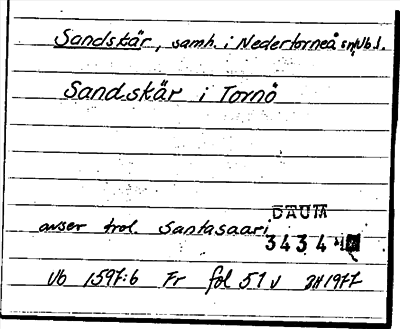 Sandskär, samh. i Nedertorneå sn, Vb. l.
Sandskär i Tornö
DAUM
avser trol. Santasaari
3434
Vb 1597:6 Fr fol 51 v JH 1977